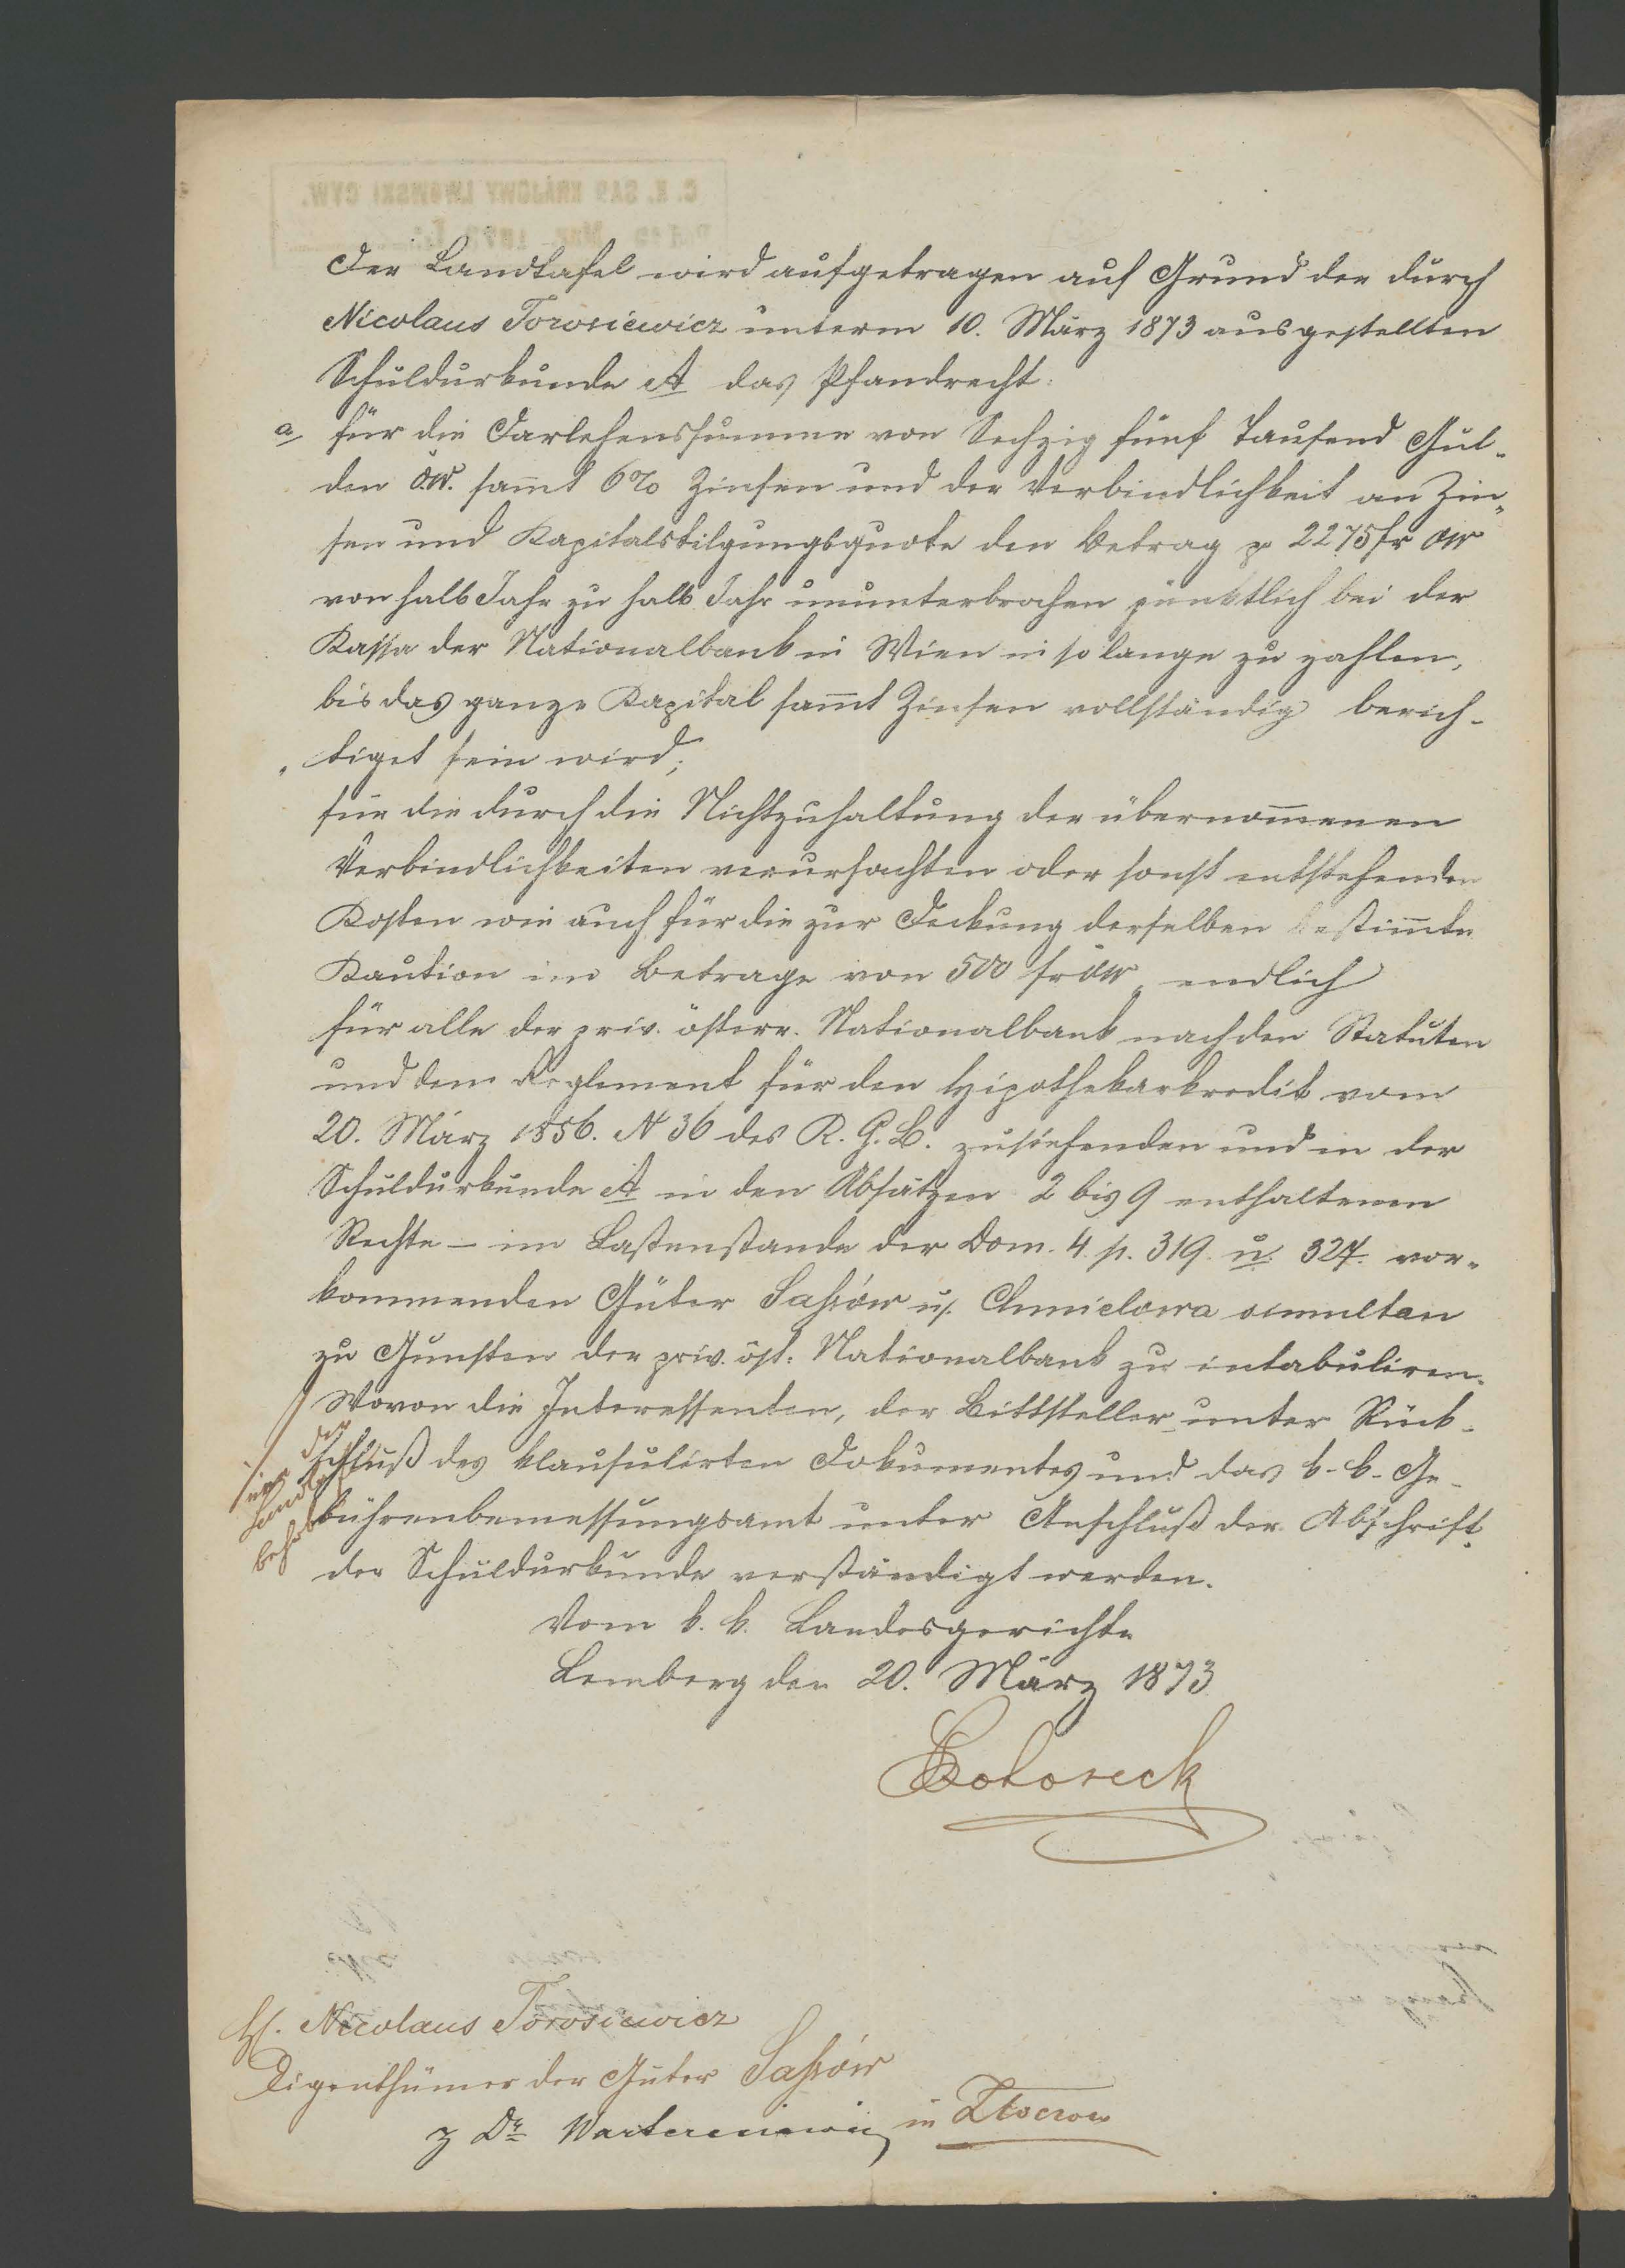 Der Landtafel wird aufgetragen auf Grund der durch
Nicolaus Torosiewicz unterm 10. März 1873 ausgestellten
Schuldurkunde A das Pfandrecht:
a für die Darlehenssumme von Sechzig fünf Tausend Gul-
den ö.W. samt 6% Zinsen und der Verbindlichkeit an Zin-
sen und Kapitalstilgungsquote den Betrag pr 2275 fr öW
von halb Jahr zu halb Jahr ununterbrochen pünktlich bei der
Kassa der Nationalbank in Wien in so lange zu zahlen,
bis das ganze Kapital samt Zinsen vollständig berich-
tiget sein wird;
für die durch die Nichtzuhaltung der übernomenen
Verbindlichkeiten verursachten oder sonst entstehenden
Kosten wie auch für die zur Deckung derselben bestimte
Kaution im Betrage von 500 fr öW, endlich
für alle der priv. österr. Nationalbank nach den Statuten
und dem Reglement für den Hipothekarkredit vom
20. März 1856. N 36 des R. G. B. zustehenden und in der
Schuldurkunde A in den Absätzen 2 bis 9 enthaltenen
Rechte – im Lastenstande der Dom. 4. p. 319. u. 327. vor-
kommenden Güter Sassów u. Chmielowa simultan
zu Gunsten der priv. öst. Nationalbank zu intabuliren.
Wovon die Interessenten, der Bittsteller unter Rück-
schluß des klausulirten Dokumentes und das k. k. Ge-
bührenbemessungsamt unter Anschluß der Abschrift
der Schuldurkunde verständigt werden.
Vom k. k. Landesgerichte
Lemberg den 20. März 1873
H. Nicolaus Torosiewicz
Eigenthümer der Güter Sassów
z Dr Warteresiewicz in Złoczow